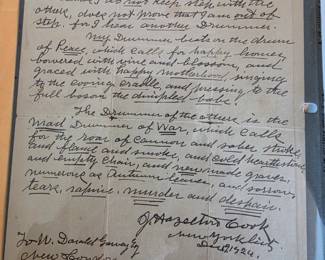 not keep step with the
other, does not prove that I am out of
step. for I hear another Drummer.
My Drummer beats on the drum
of Peace, which calls for happy homes,
bowered with vine and blossom, and
graced with happy motherhood, singing
to the cooing cradle, and pressing to the
full bosom the dimpled babe.
The Drummer of the other is the
mad Drummer of War, which calls
for the roar of Cannon and sabre stroke
and flame and smoke, and cold hearthstone
and empty Chair, and new made graves,
numerous as Autumn leaves, and sorrow,
tears, rapine, murder and despair.
J. Hazelton Cook
New York City
1924.
To W. Donald
New London